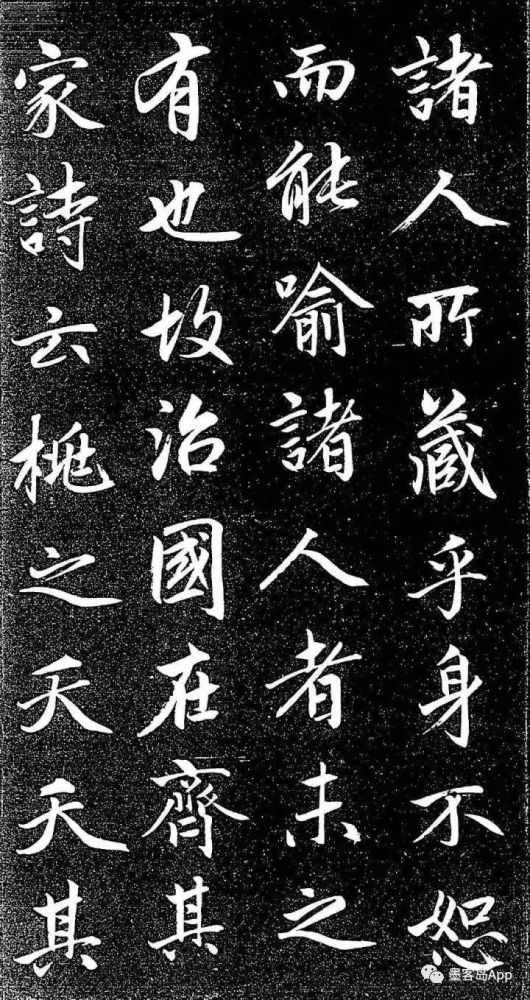 諸人所藏乎身不恕
而能喻諸人者未之
有也故治國在齊其
家詩云桃之夭夭其
墨客岛App